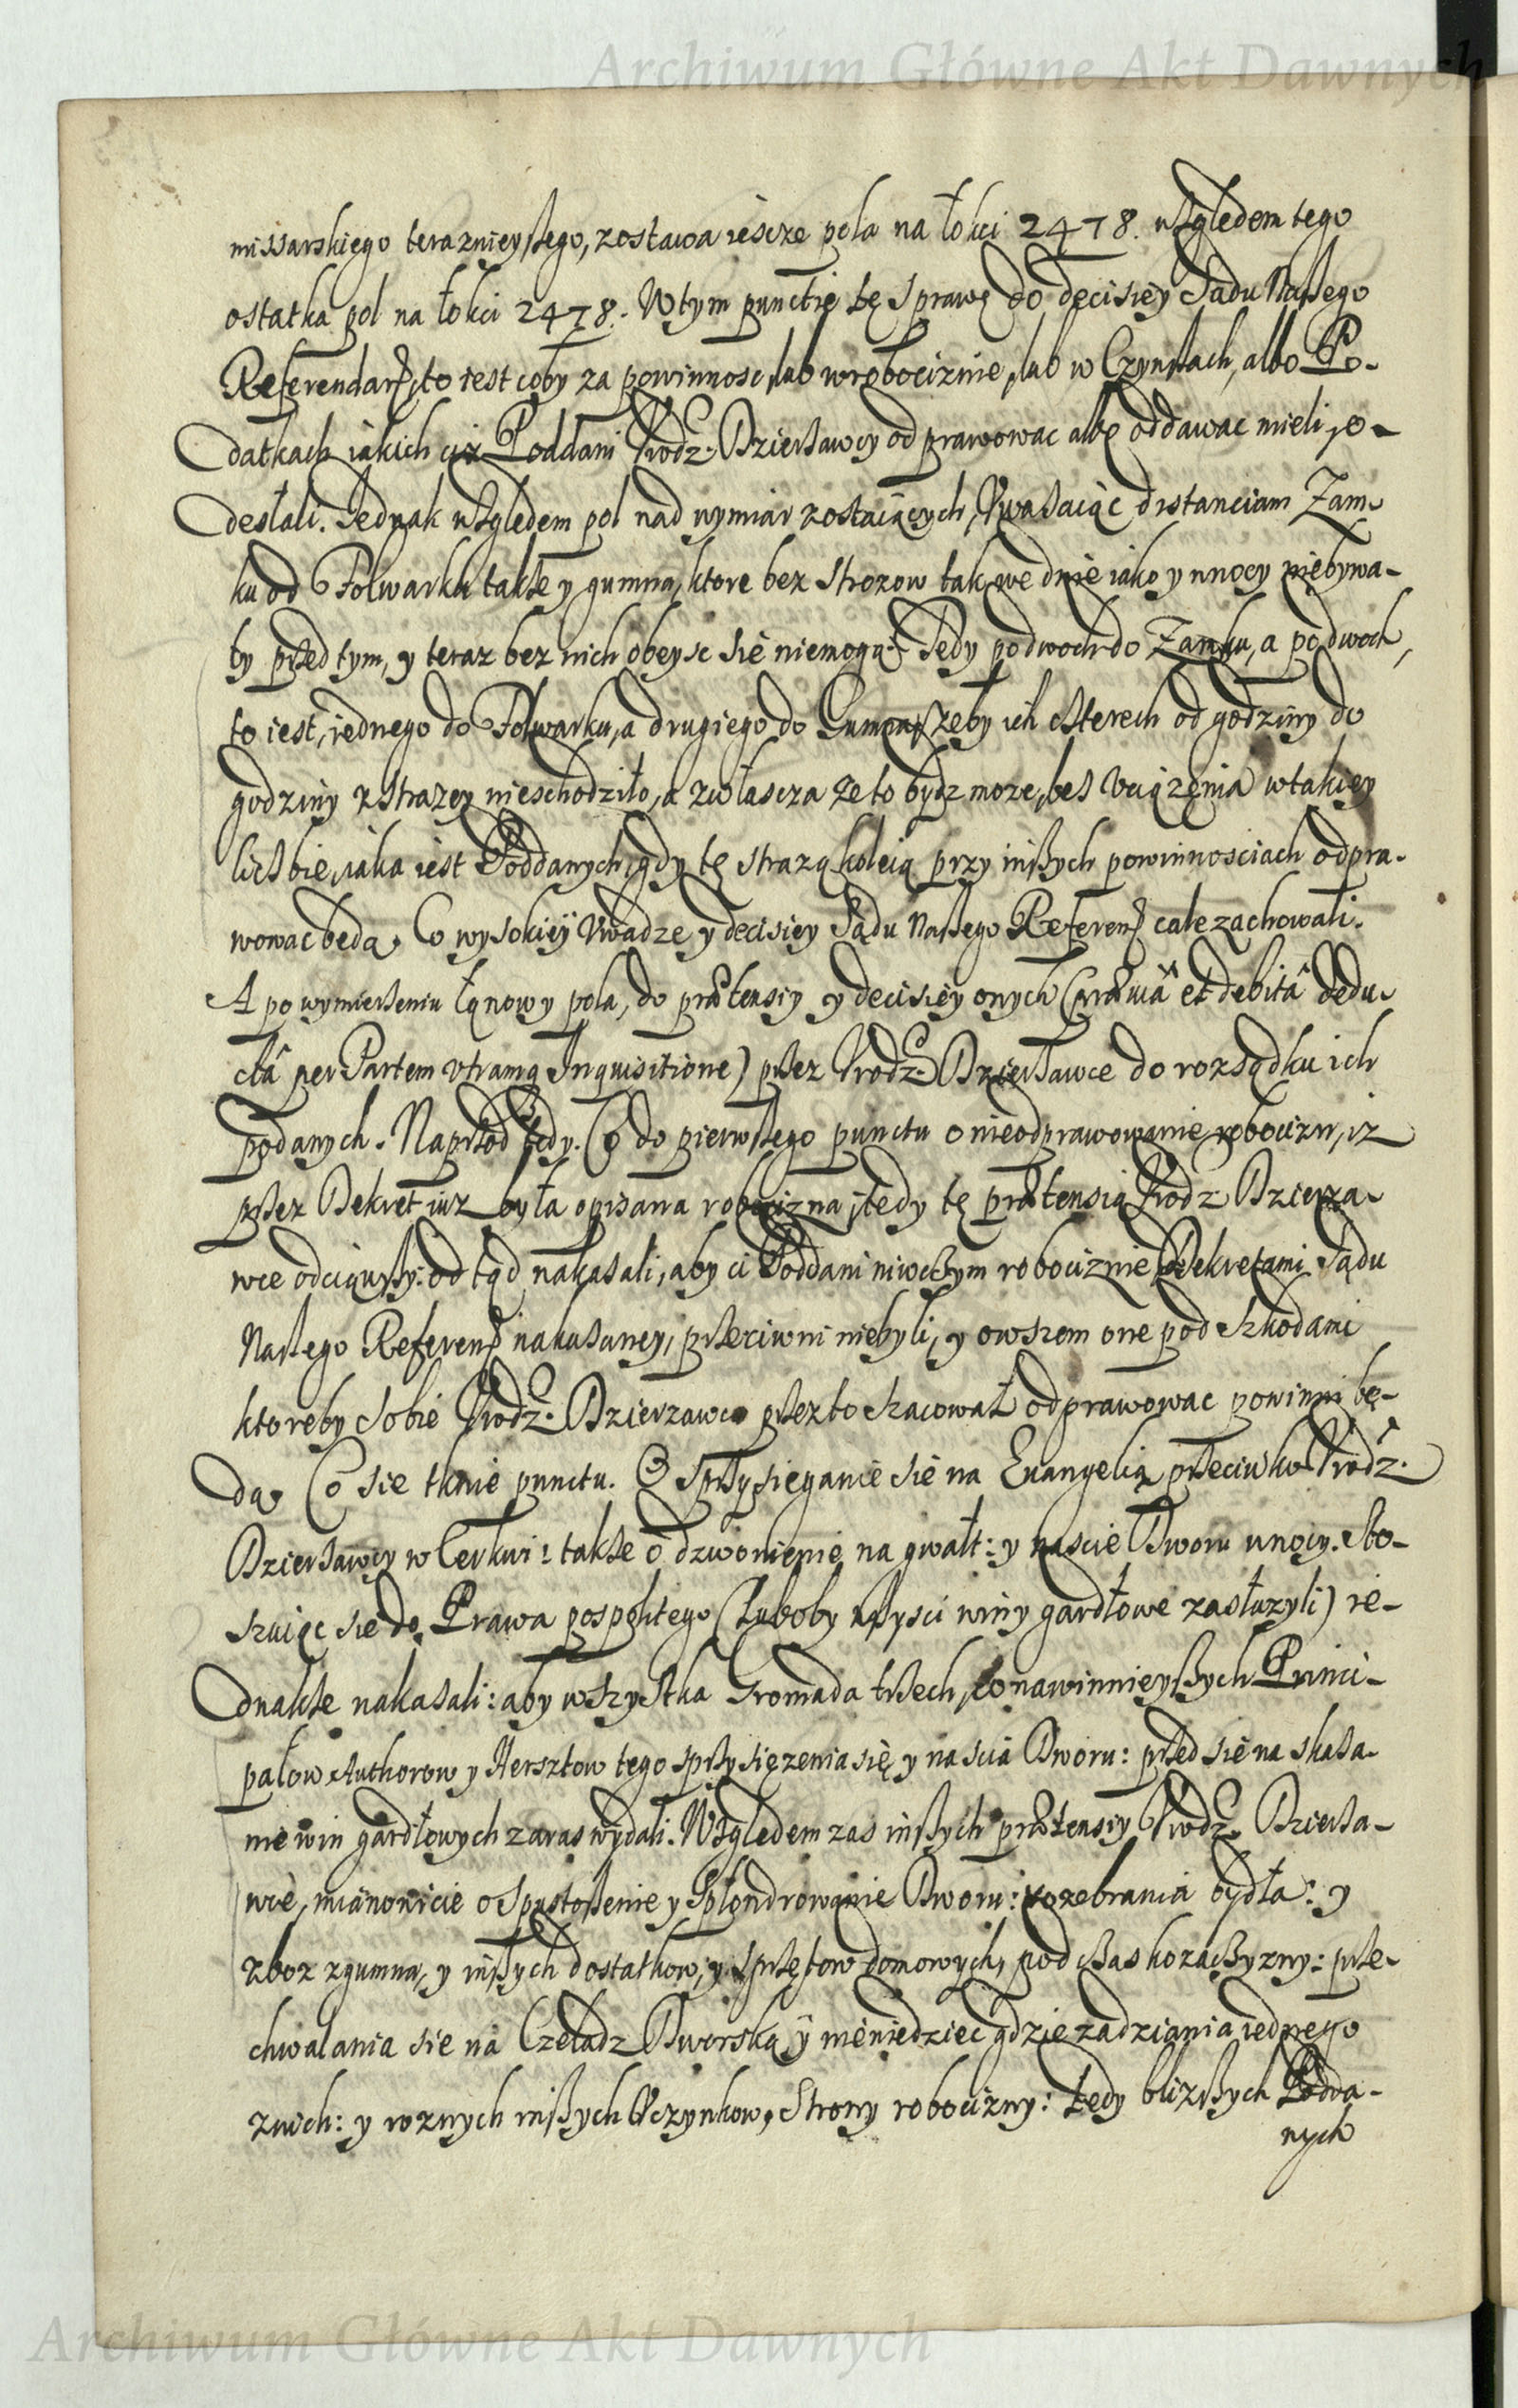 Archiwum Główne Akt Dawnych
missarskiego teraznieyszego, zostawa iescze pola na łokci 2478. względem tego
ostatka pol na łokci 2478. W tym punctie tę sprawę do decisiey Sądu Naszego
Referendarz, to iest coby za powinnosc, lub w robociznie, lub w Czynszach, albo Po-
datkach iakich ciż Poddani Urodz. Dzierżawcy odprawowac albo oddawac mieli, o-
desłali. Jednak względem pol nad wymiar zostaiących, Uważaiąc distanciam Zam-
ku od Folwarku także y gumna, ktore bez strozow tak we dnie iako y w nocy niebywa-
ły przed tym, y teraz bez nich obeysc się niemogą. Tedy po dwoch do Zamku, a po dwoch,
to iest, iednego do Folwarku, a drugiego do Gumna, żeby ich czterech od godziny do
godziny z strazey nieschodziło, a zwłascza że to bydz moze, bes Uciązenia w takiey
liczbie, iaka iest Poddanych, gdy tę strazą koleią przy inszych powinnosciach odpra-
wowac będą. Co wysokiey Uwadze y decisiey Sądu Naszego Referen. cale zachowali.
A po wymierzeniu łanowy pola, do prætensiy y decisiey onych (præviâ et debitâ dedu-
ctâ per Partem utramq Inquisitione) przez Urodz. Dzierżawce do rozsądku ich
podanych. Naprzod tedy. Co do pierwszego punctu o nieodprawowanie robocizn, iz
przez Dekret iuz była opisana robocizna, tedy tę prætensią Urodz Dzierza-
wce odciąwszy: od tąd nakazali, aby ci Poddani niwczym robociznie Dekretami Sądu
Naszego Referen. nakazaney, przeciwni niebyli, y owszem one pod szkodami
ktoreby sobie Urodz. Dzierzawca przezto szacował odprawowac powinni bę-
dą. Co się tknie punctu. O sprzysięganie się na Evangelią przeciwko Urodz.
Dzierżawcy w Cerkwi: także o dzwonienie na gwałt: y nascie Dworu w nocy. Sto-
suiąc się do Prawa pospolitego (Luboby wszysci winy gardłowe zasłuzyli) ie-
dnakże nakazali: aby wszystka Gromada trzech, co nawinnieyszych Princi-
pałow Authorow y Hersztow tego sprzysięzenia się y nascia Dworu: przed się na skaza-
nie win gardłowych zaras wydali. Względem zas inszych prætensiy Urodz. Dzierża-
wce, mianowicie o Spustoszenie y Splondrowanie Dworu: rozebrania bydła: y
zboz z gumna, y inszych dostatkow, y sprzętow domowych, pod czas kozaczyzny: prze-
chwalania się na Czeladz Dworską y nieniedziec gdzie zadziania iednego
z nich: y roznych inszych Uczynkow, Strony robocizny: tedy blizszych Podda-
nych
Archiwum Główne Akt Dawnych